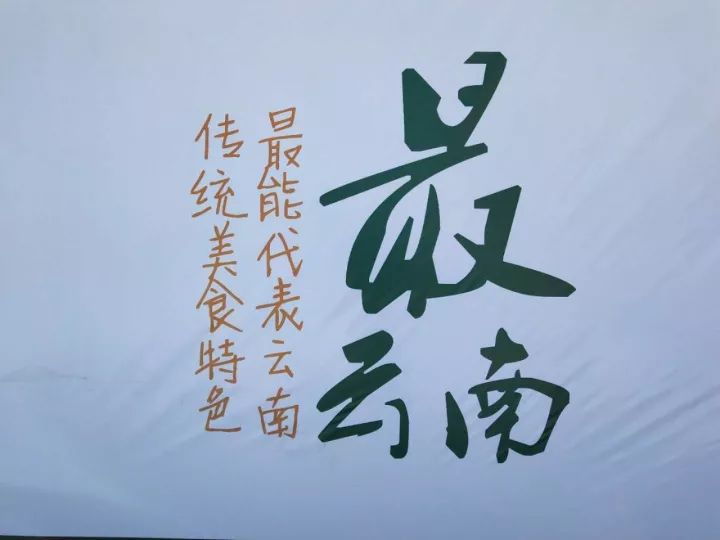 最
云南
最能代表云南
传统美食特色